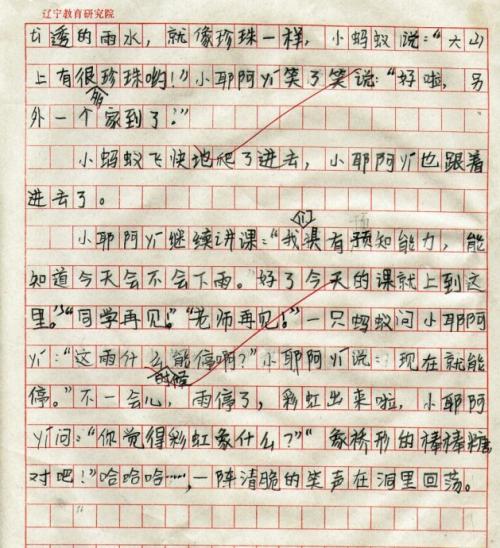 辽宁教育研究院
透的雨水，就像珍珠一样，小蚂蚁说：“大山
上有很多珍珠哟！”小耶阿丫笑了笑说：“好啦，另
外一个家到了。”
小蚂蚁飞快地爬了进去，小耶阿丫也跟着
进去了。
小耶阿丫继续讲课：“我们具有预知能力，能
知道今天会不会下雨。”好了今天的课就上到这
里。”“同学再见！”“老师再见！”一只蚂蚁问小耶阿
丫：“这雨什么时候能停啊？”小耶阿丫说：现在就能
停。”不一会儿，雨停了，彩虹出来啦，小耶阿
丫问：“你觉得彩虹象什么？”“象桥形的棒棒糖
对吧！”哈哈哈……，一阵清脆的笑声在洞里回荡。